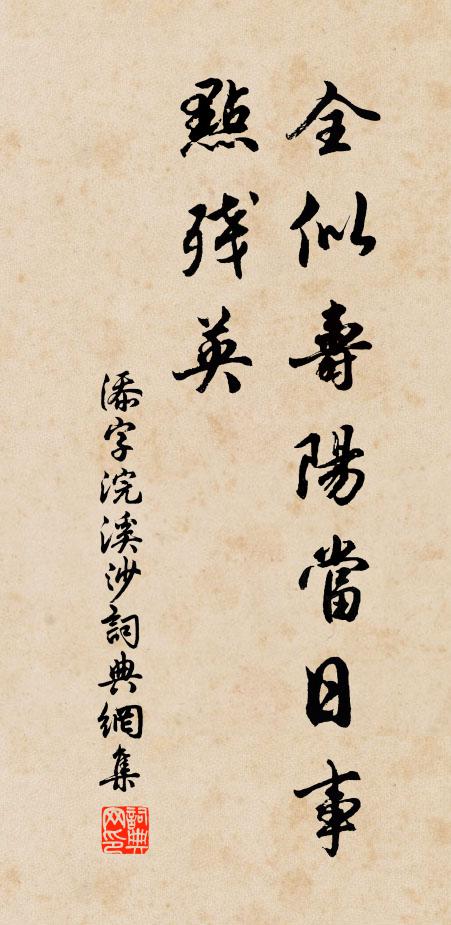 全似壽陽當日事
點残英
添字浣溪沙詞典網集
詞典网印